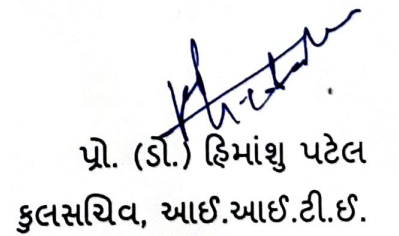 પ્રો. (ડૉ.) હિમાંશુ પટેલ
કુલસચિવ, આઈ.આઈ.ટી.ઈ.